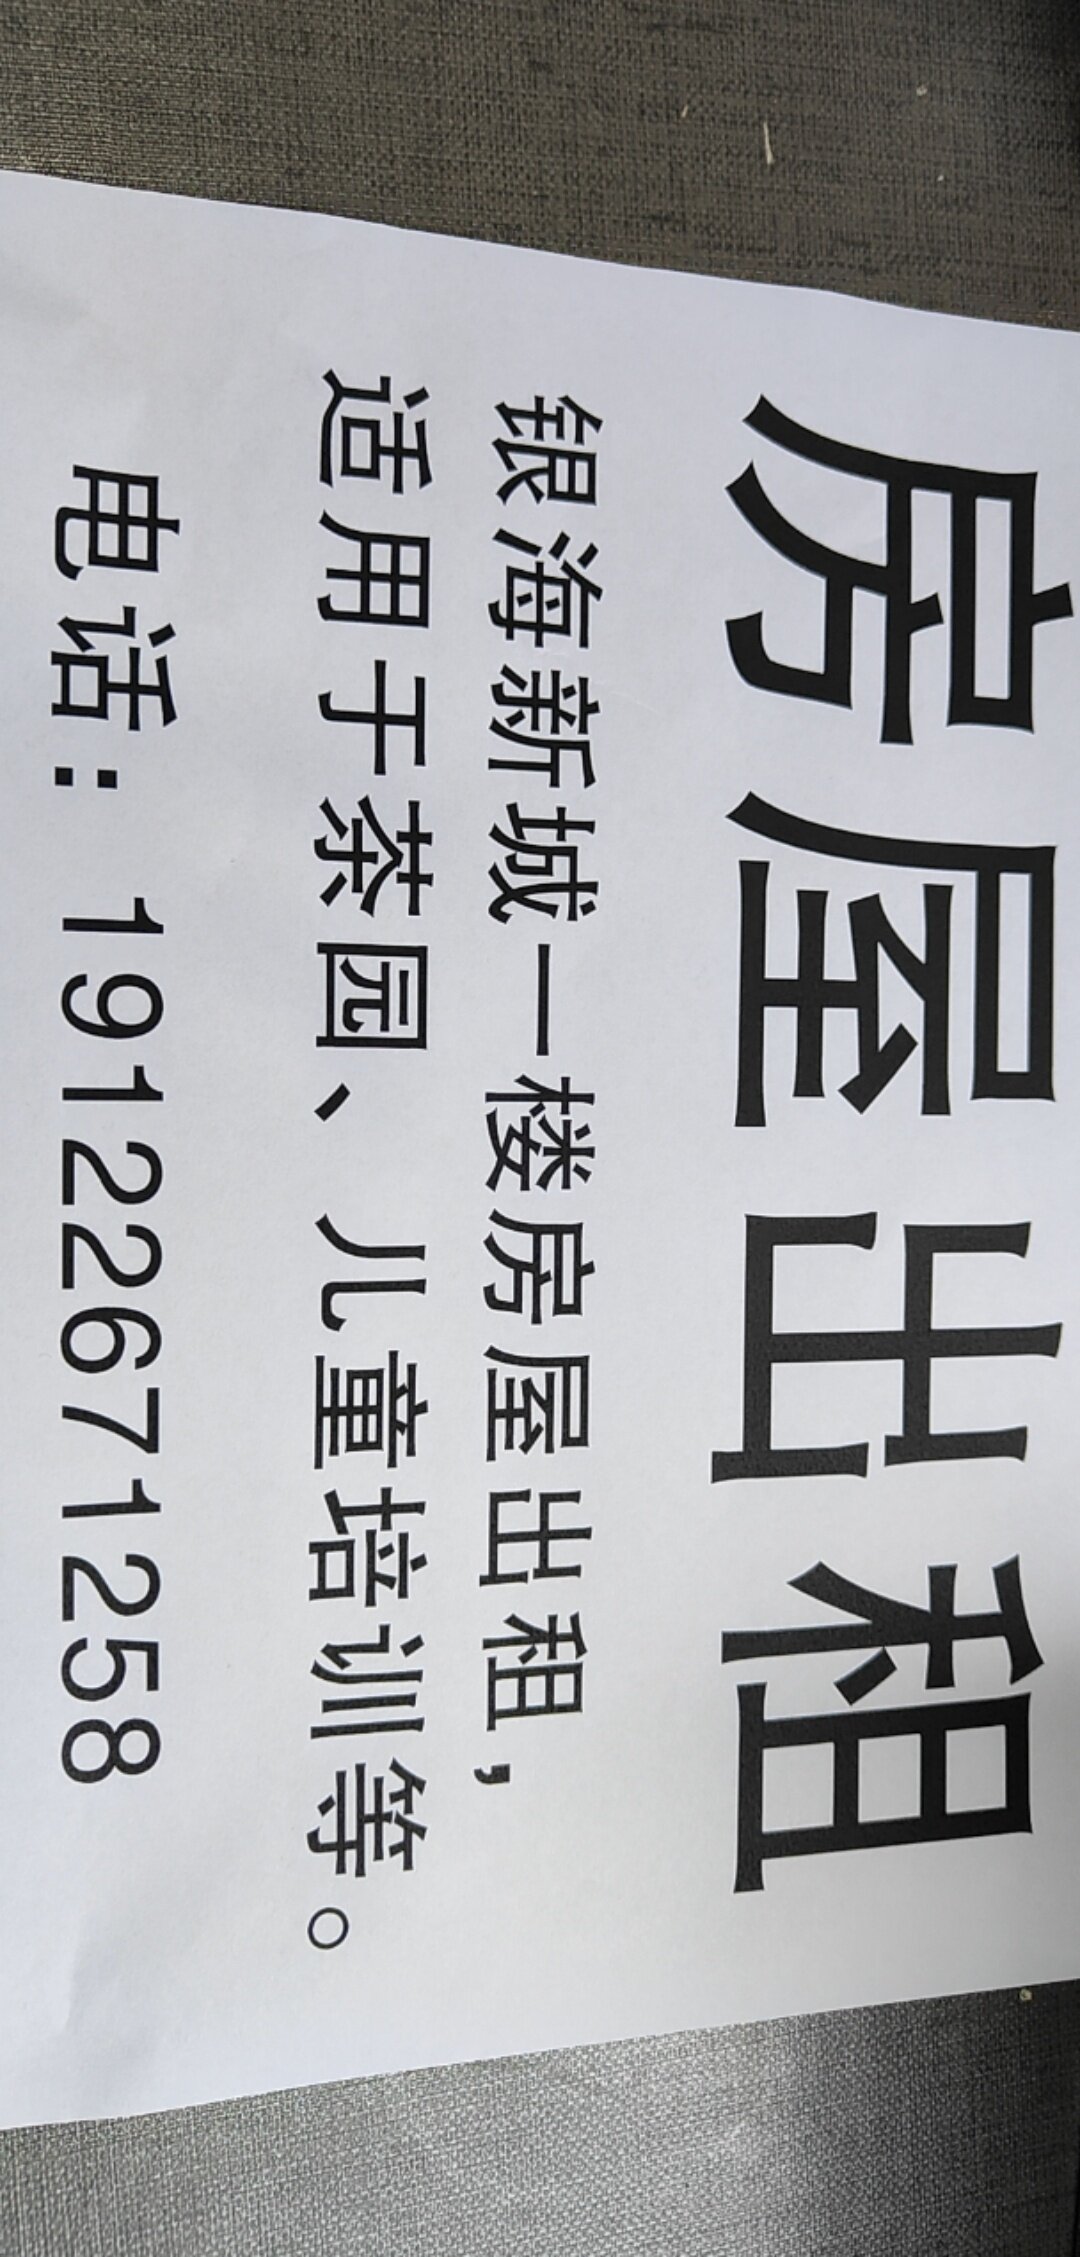 房屋出租
银海新城一楼房屋出租，
适用于茶园、儿童培训等。
电话：19122671258